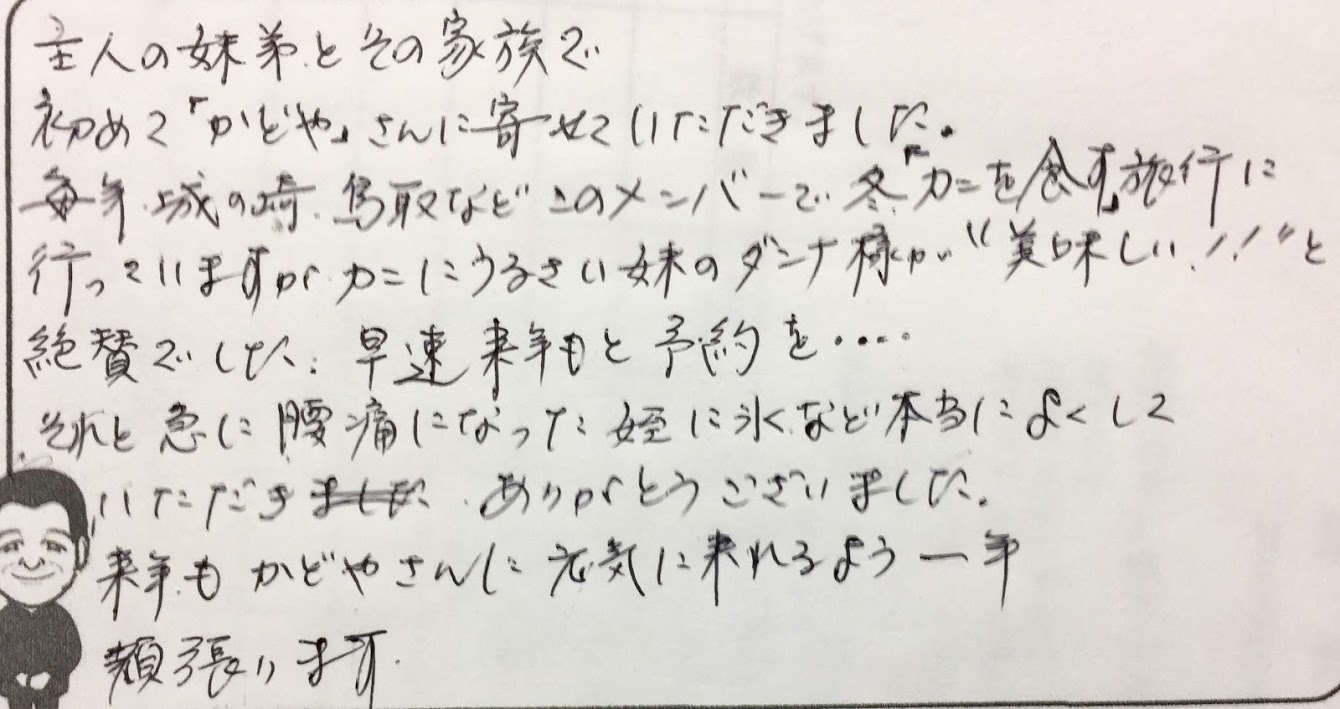 主人の妹弟とその家族で
初めて「かどや」さんに寄せていただきました。
毎年.城の崎.鳥取などこのメンバーで冬「カニを食す」旅行に
行っていますが.カニにうるさい妹のダンナ様が“美味しい!!”と
絶賛でした.早速来年もと予約を・・・・
それと急に腰痛になった姪に氷など本当によくして
いただきました.ありがとうございました。
来年もかどやさんに元気に来れるよう一年
頑張ります.